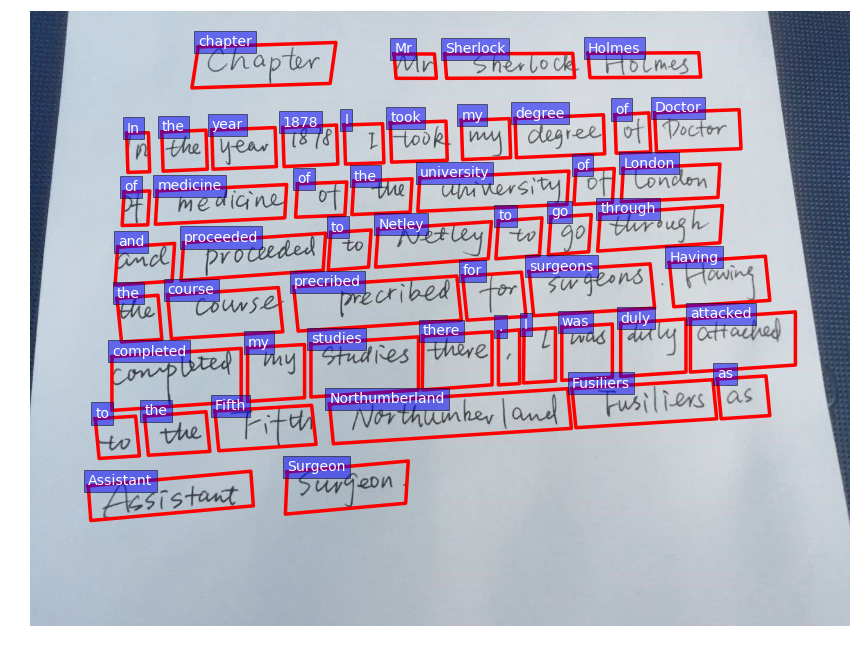 chapter Mr Sherlock Holmes
Chapter Mr Sherlock Holmes
In the year 1878 I took my degree of Doctor
In the year 1878 I took my degree of Doctor
of medicine of the university of London
of medicine of the university of London
and proceeded to Netley to go through
and proceeded to Netley to go through
the course precribed for surgeons Having
the course precribed for surgeons. Having
completed my studies there , I was duly attacked
completed my studies there, I was duly attached
to the Fifth Northumberland Fusiliers as
to the Fifth Northumberland Fusiliers as
Assistant Surgeon
Assistant Surgeon.